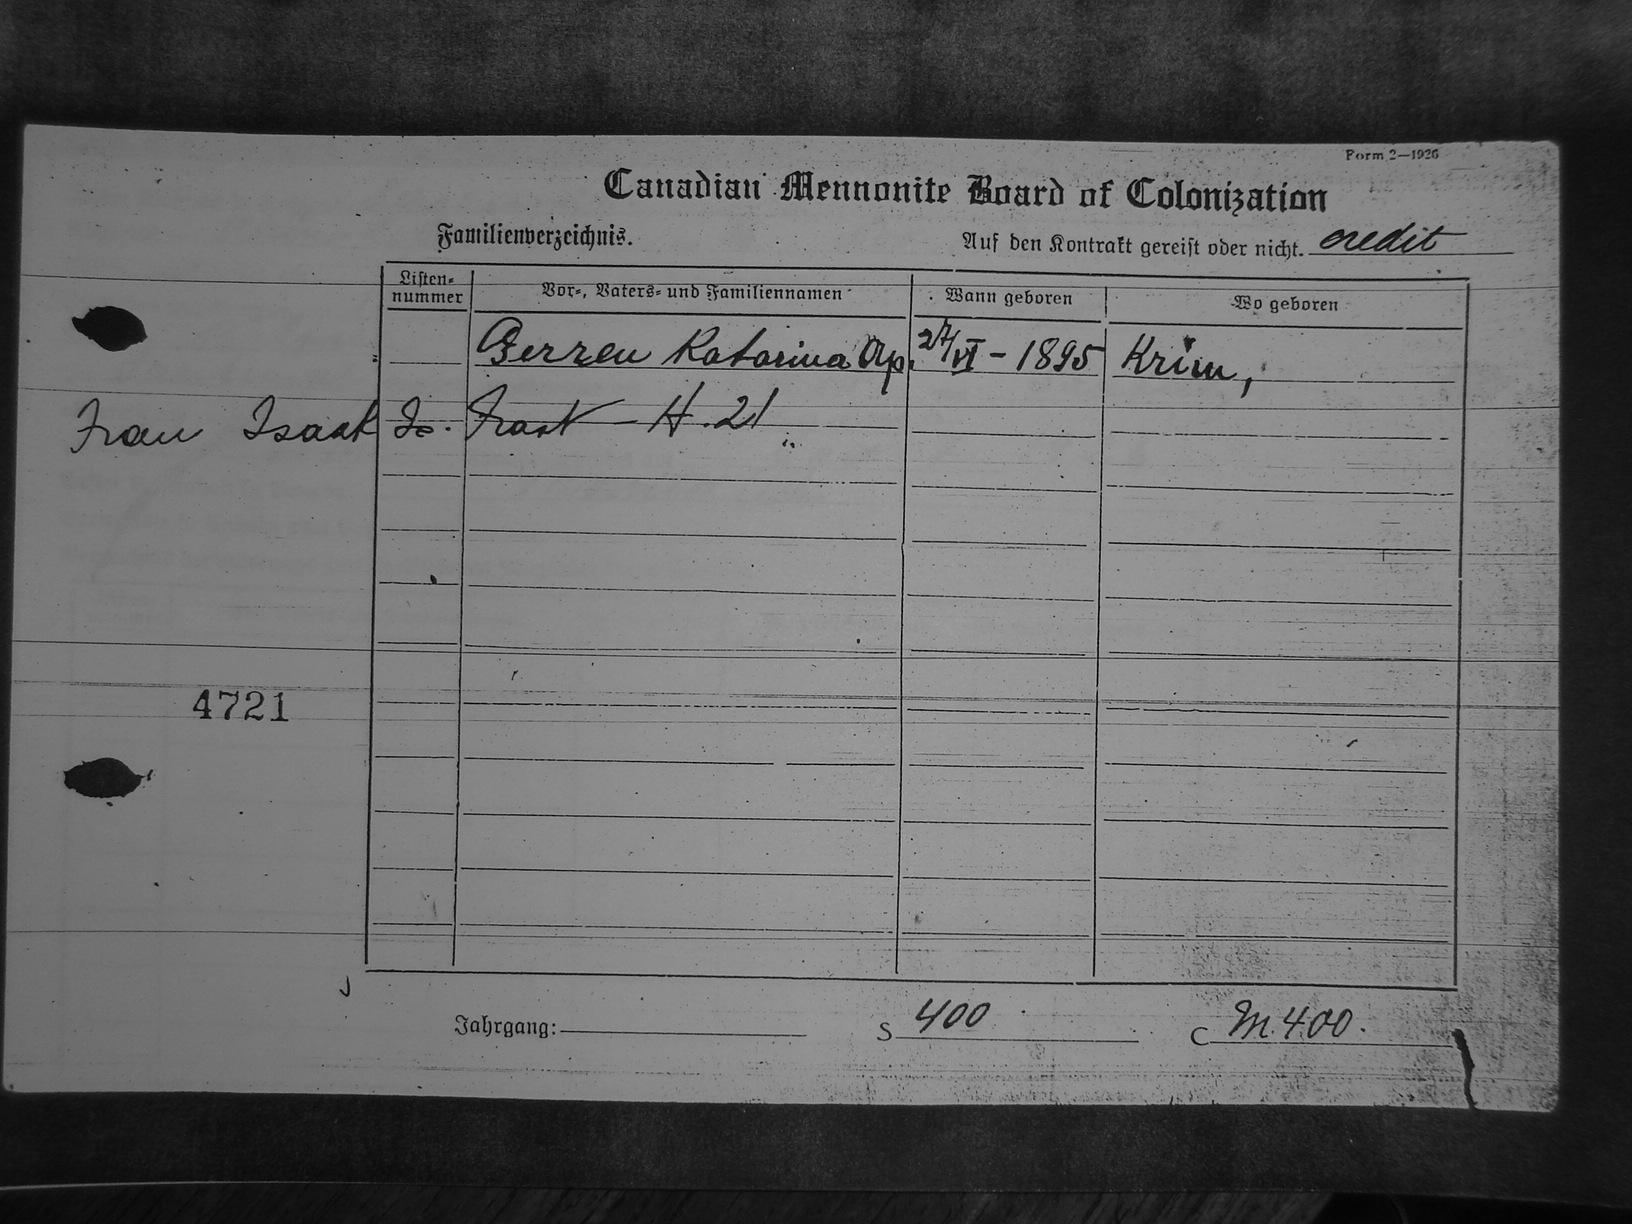 Form 2—1926
Canadian Mennonite Board of Colonization
Familienverzeichnis.
Auf den Kontrakt gereist oder nicht. credit
Listen-
nummer
Vor-, Vaters- und Familiennamen
Wann geboren
Wo geboren
Berzen Katarina Ap. 27/VI - 1895 Krim,
Frau Isaak Is. - H. 21
4721
Jahrgang:
S 400
C M. 400.